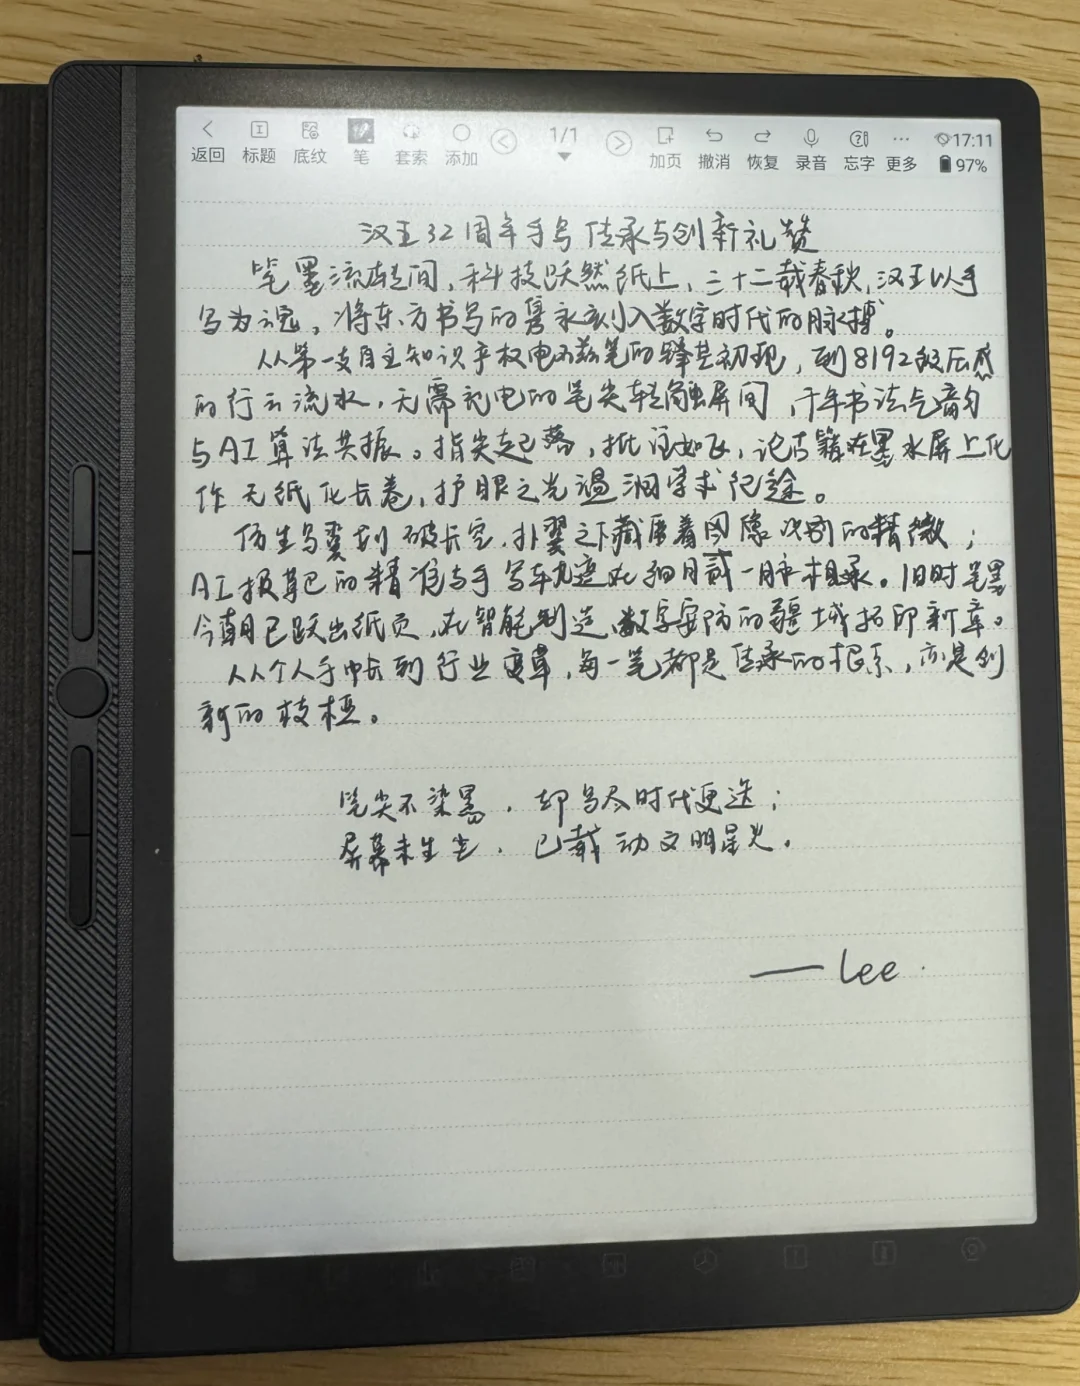 返回 标题 底纹 笔 套索 添加 1/1 加页 撤消 恢复 录音 忘字 更多 17:11 97%
汉王32周年手写传承与创新礼赞
笔墨流转间，科技跃然纸上，三十二载春秋，汉王以手
写为魂，将东方书写的隽永刻入数字时代的脉搏。
从第一支自主知识产权电磁笔的锋芒初现，到8192级压感
的行云流水，无需充电的笔尖轻触屏间，千年书法气韵
与AI算法共振。指尖起落，批注如飞，让古籍在墨水屏上化
作无纸化长卷，护眼之光温润学术征途。
仿生鸟翼划破长空，扑翼之下藏匿着图像识别的精微；
AI报草的精准与手写轨迹在一脉相承。旧时笔墨
今朝已跃出纸页，在智能制造、数字安防的疆域拓印新章。
从个人手中长到行业变革，每一笔都是传承的根系，亦是创
新的枝桠。
笔尖不染墨，却写尽时代更迭；
屏幕未生尘，已载动文明星光。
—— Lee